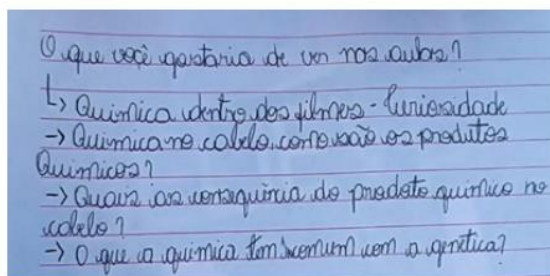 O que você gostaria de ver nas aulas?
↳ Química dentro dos filmes - Curiosidade
→ Química no cabelo, como são os produtos
Químicos?
→ Quais as consequência do produto químico no
cabelo?
→ O que a química tem comum com a genética?